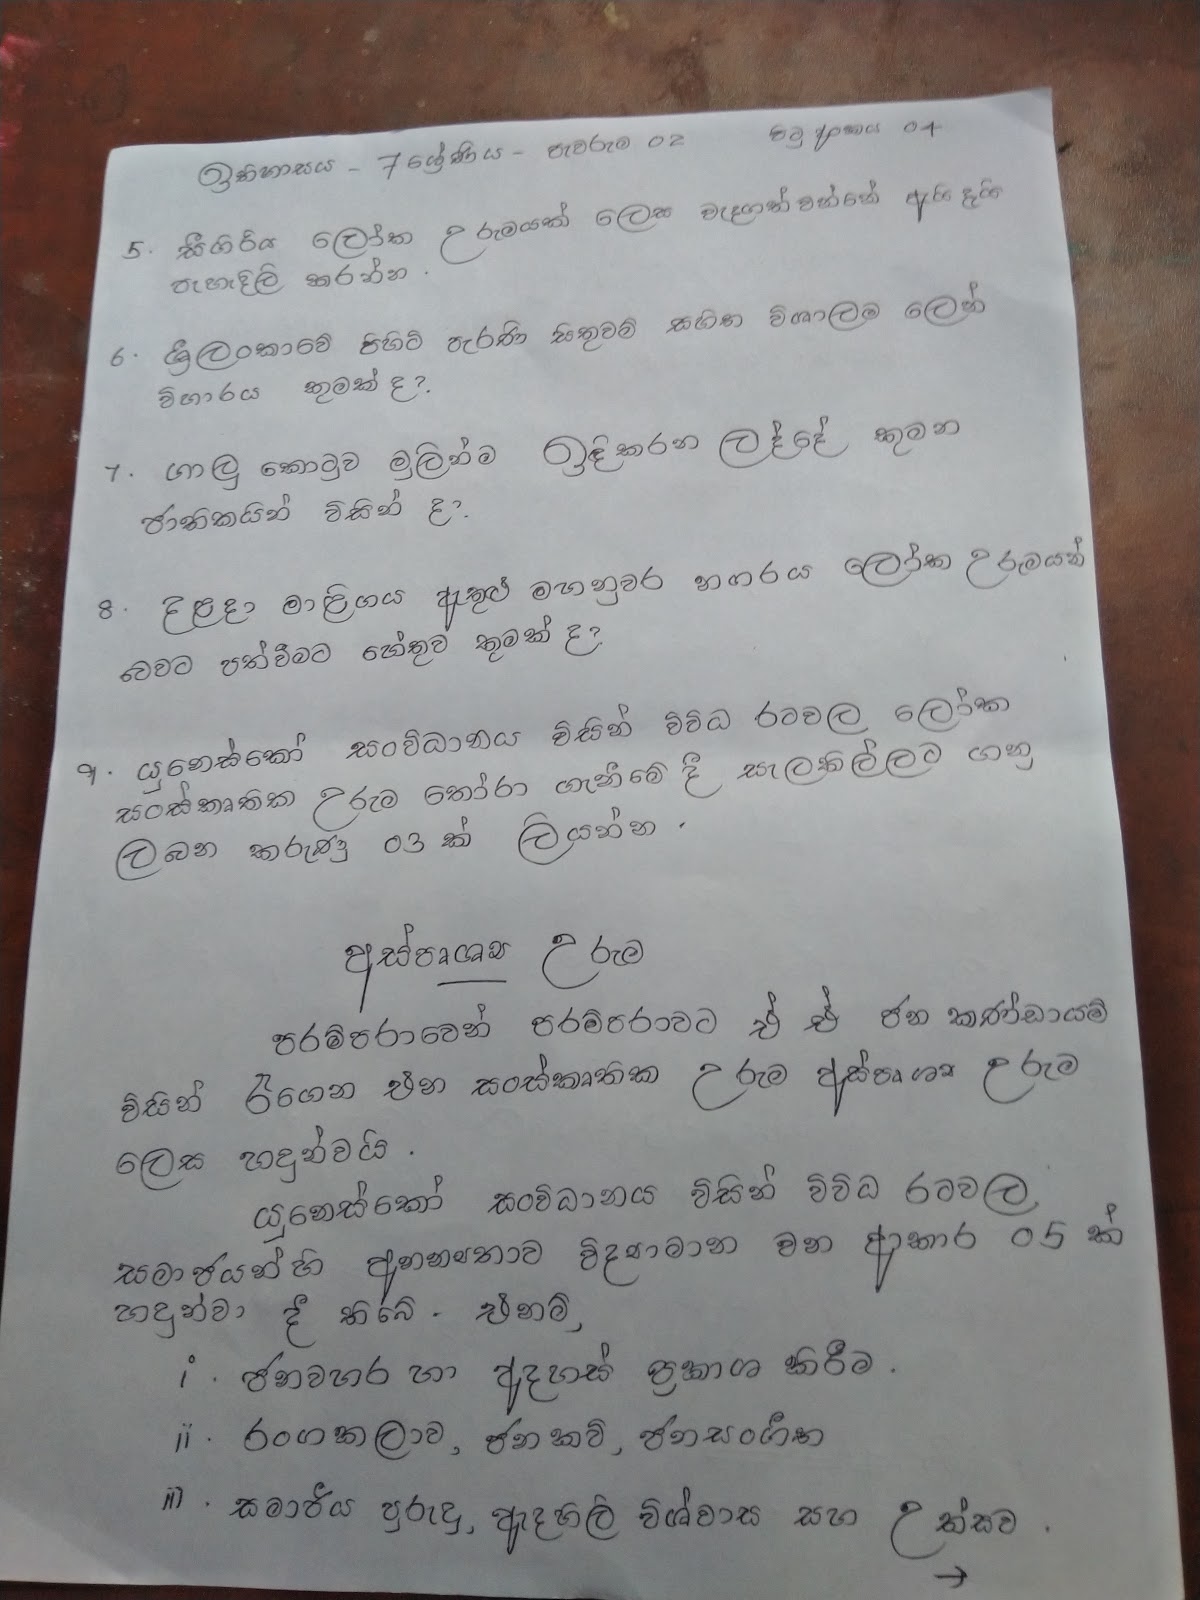 ඉතිහාසය - 7 ශ්‍රේණිය - පැවරුම 02 පිටු අංකය 04
5. සීගිරිය ලෝක උරුමයක් ලෙස වැදගත් වන්නේ ඇයි දැයි
පැහැදිලි කරන්න.
6. ශ්‍රී ලංකාවේ පිහිටි පැරණි සිතුවම් සහිත විශාලම ලෙන්
විහාරය කුමක් ද?
7. ගාලු කොටුව මුලින්ම ඉදිකරන ලද්දේ කුමන
ජාතිකයින් විසින් ද?
8. දළදා මාලිගය ඇතුළු මහනුවර නගරය ලෝක උරුමයක්
බවට පත්වීමට හේතුව කුමක් ද?
9. යුනෙස්කෝ සංවිධානය විසින් විවිධ රටවල ලෝක
සංස්කෘතික උරුම තෝරා ගැනීමේ දී සැලකිල්ලට ගනු
ලබන කරුණු 03 ක් ලියන්න.
අස්පෘශ්‍ය උරුම
පරම්පරාවෙන් පරම්පරාවට ඒ ඒ ජන කණ්ඩායම්
විසින් රැගෙන එන සංස්කෘතික උරුම අස්පෘශ්‍ය උරුම
ලෙස හදුන්වයි.
යුනෙස්කෝ සංවිධානය විසින් විවිධ රටවල
සමාජයන්හි අනන්‍යතාව විද්‍යාමාන වන ආකාර 05 ක්
හදුන්වා දී තිබේ. එනම්,
i. ජනවහර හා අදහස් ප්‍රකාශ කිරීම.
ii. රංගකලාව, ජනකවි, ජනසංගීත
iii. සමාජීය පුරුදු, ඇදහිලි විශ්වාස සහ උත්සව.
→